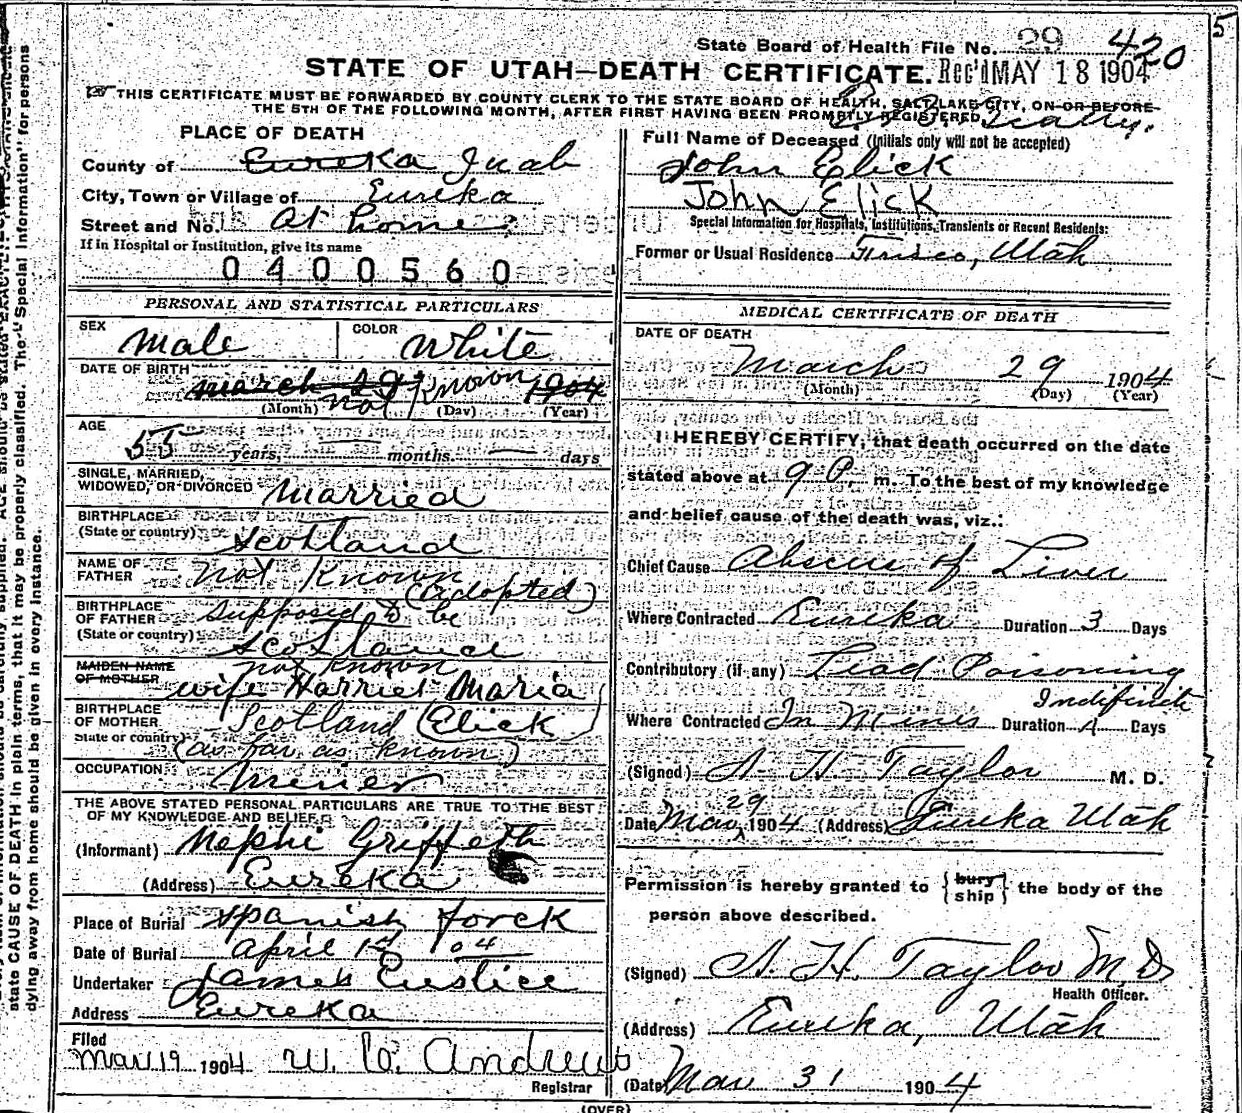 5
State Board of Health File No. 29 420
STATE OF UTAH—DEATH CERTIFICATE. Rec'd MAY 18 1904
THIS CERTIFICATE MUST BE FORWARDED BY COUNTY CLERK TO THE STATE BOARD OF HEALTH, SALT LAKE CITY, ON OR BEFORE
THE 5TH OF THE FOLLOWING MONTH, AFTER FIRST HAVING BEEN PROMPTLY REGISTERED
PLACE OF DEATH
County of Eureka Juab
City, Town or Village of Eureka
Street and No. At home
If in Hospital or Institution, give its name
0400560
PERSONAL AND STATISTICAL PARTICULARS
SEX Male COLOR White
DATE OF BIRTH march 29 1904 not Known
(Month) (Day) (Year)
AGE 55 years, — months. — days
SINGLE, MARRIED,
WIDOWED, OR DIVORCED Married
BIRTHPLACE
(State or country) Scotland
NAME OF
FATHER not Known
(adopted)
BIRTHPLACE
OF FATHER supposed to be
(State or country) Scotland
MAIDEN NAME not Known
OF MOTHER wife Harriet Maria
BIRTHPLACE
OF MOTHER Scotland (Elick)
State or country) (as far as known)
OCCUPATION Miner
THE ABOVE STATED PERSONAL PARTICULARS ARE TRUE TO THE BEST
OF MY KNOWLEDGE AND BELIEF.
(Informant) Nephi Griffeth
(Address) Eureka
Place of Burial Spanish Forck
Date of Burial April 04
Undertaker James Eustice
Address Eureka
Filed
May 19 1904 W. Andrews
Registrar
Full Name of Deceased (Initials only will not be accepted)
John Elick
John Elick
Special Information for Hospitals, Institutions, Transients or Recent Residents:
Former or Usual Residence Frisco, Utah
MEDICAL CERTIFICATE OF DEATH
DATE OF DEATH
March 29 1904
(Month) (Day) (Year)
I HEREBY CERTIFY, that death occurred on the date
stated above at 9 P. m. To the best of my knowledge
and belief cause of the death was, viz.:
Chief Cause Abscess of Liver
Where Contracted Eureka Duration 3 Days
Contributory (if any) Lead Poisoning
Indifinit
Where Contracted In Mines Duration Days
(Signed) A. H. Taylor M. D.
Date Mar 29 1904 (Address) Eureka Utah
Permission is hereby granted to {bury ship} the body of the
person above described.
(Signed) A. H. Taylor M.D.
Health Officer.
(Address) Eureka, Utah
(Date) Mar 31 1904
(OVER)
state CAUSE OF DEATH in plain terms, that it may be properly classified. The "Special Information" for persons
dying away from home should be given in every instance.